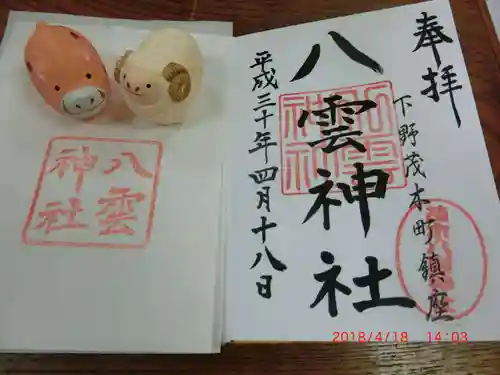 奉拝
下野茂木町鎮座
八雲神社
八雲神社
平成三十年四月十八日
八雲
神社
2018/4/18 14:03